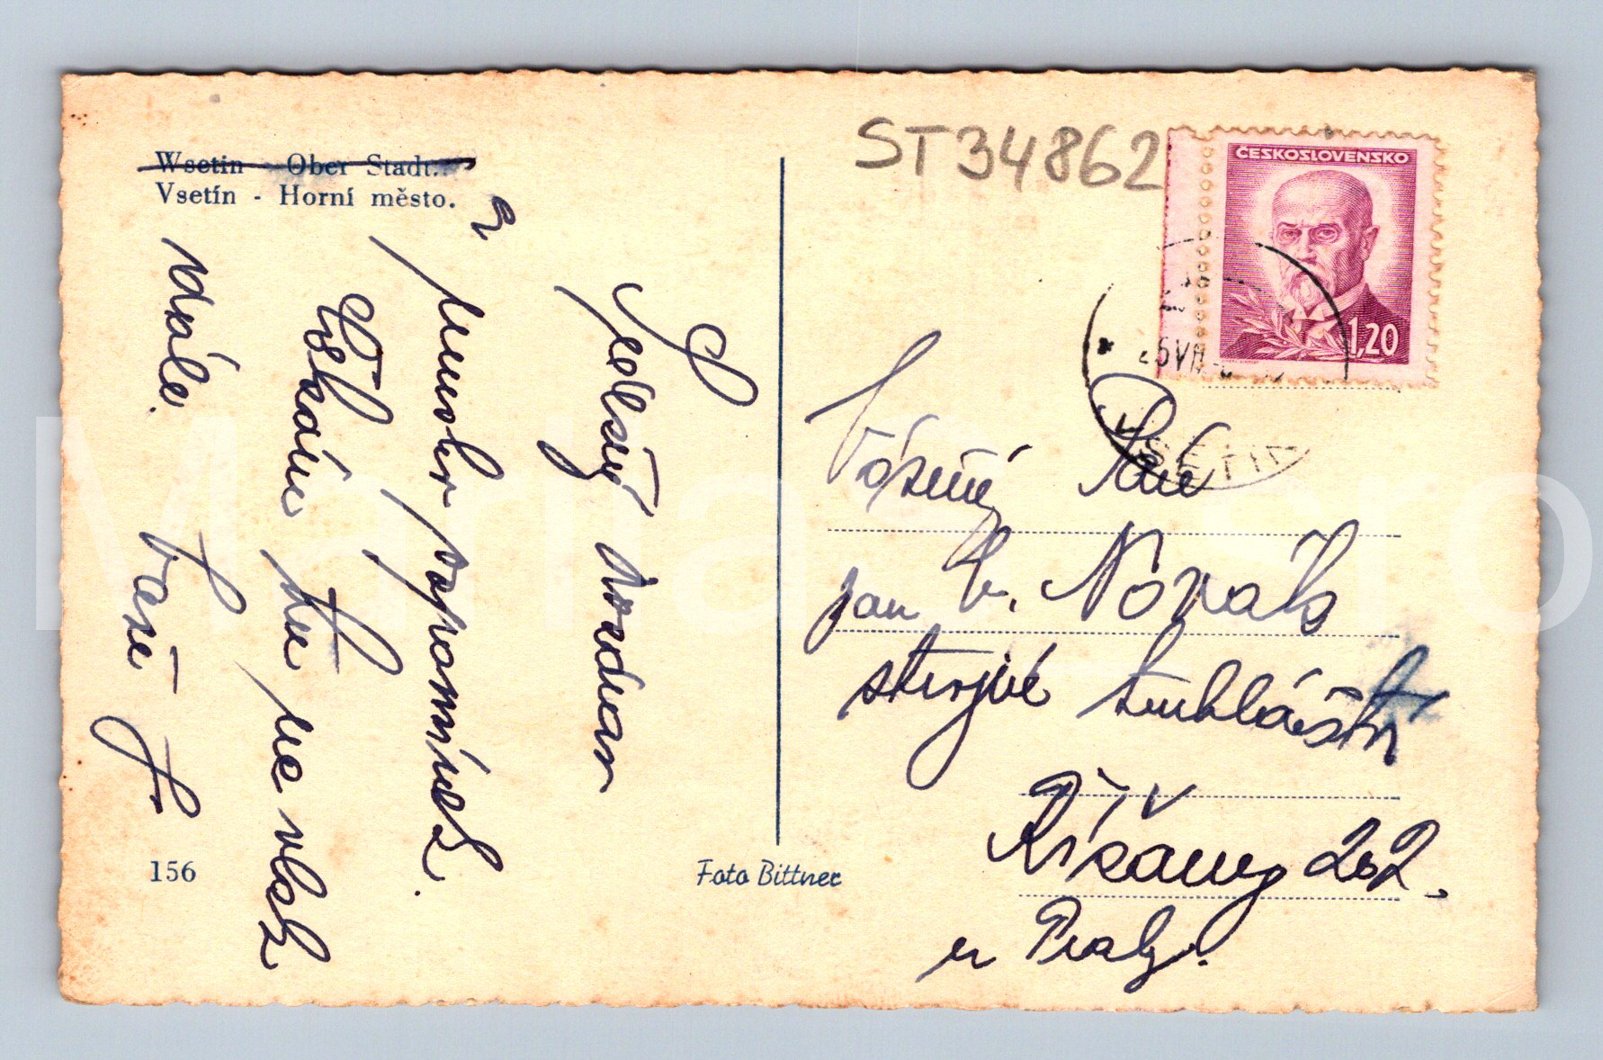 Wsetin - Ober Stadt.
Vsetín - Horní město.
Srdečný pozdrav
a
vzpomínek.
Čekám
na vlak
dále.
Vaše
156
Foto Bittner
ST34862
ČESKOSLOVENSKO
1,20
VSETÍN
Vážený Pán
Jan V. Novák
strojní truhlářství
Říčany 202.
u Prahy.